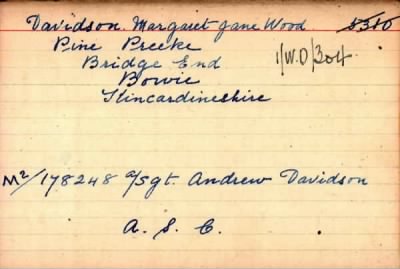 Davidson. Margaret Jane Wood 5380
Pine Preeke
Bridge End
1/W.O/304
Bowie
Kincardineshire
M2/178248 a/Sgt. Andrew Davidson
A. S. C.